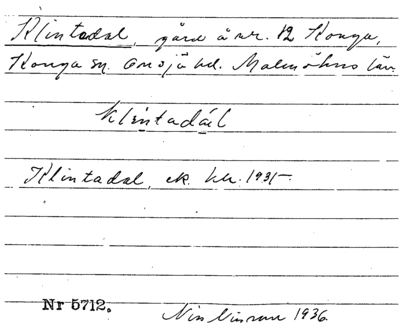 Klintadal, gård å nr. 12 Konga,
Konga sn. Onsjö hd. Malmöhus län.
Klintadal, ek. kbl. 1931-
Nr 5712.
1936.